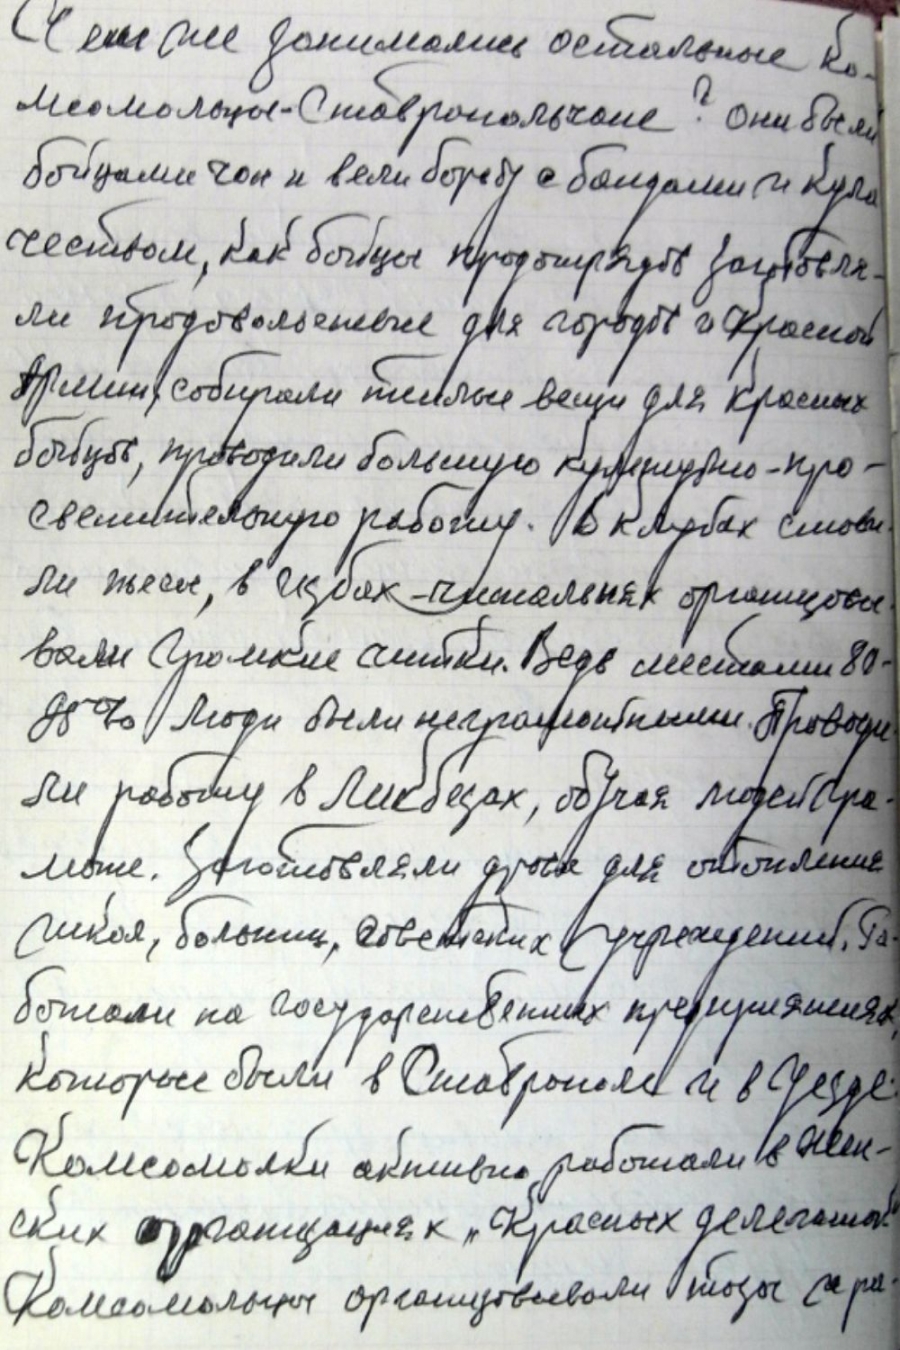 Чем же занимались остальные ко-
мсомольцы-Ставропольчане? Они были
бойцами чон и вели борьбу с бандами и кула
чеством, как бойцы продотрядов заготовля-
ли продовольствие для городов и Красной
Армии, собирали теплые вещи для красных
бойцов, проводили большую культурно-про-
светительную работу. В клубах стави-
ли пьесы, в избах-читальнях организовы-
вали громкие читки. Ведь местами 80-
% люди были неграмотными. Проводи-
ли работу в Ликбезах, обучая людей гра-
моте. Заготовляли дрова для отопления
школ, больниц, советских учреждений. Ра-
ботали на государственных предприятиях,
которые были в Ставрополе и в Уезде.
Комсомолки активно работали в жен-
ских организациях „Красных делегаток"
Комсомольцы организовывали